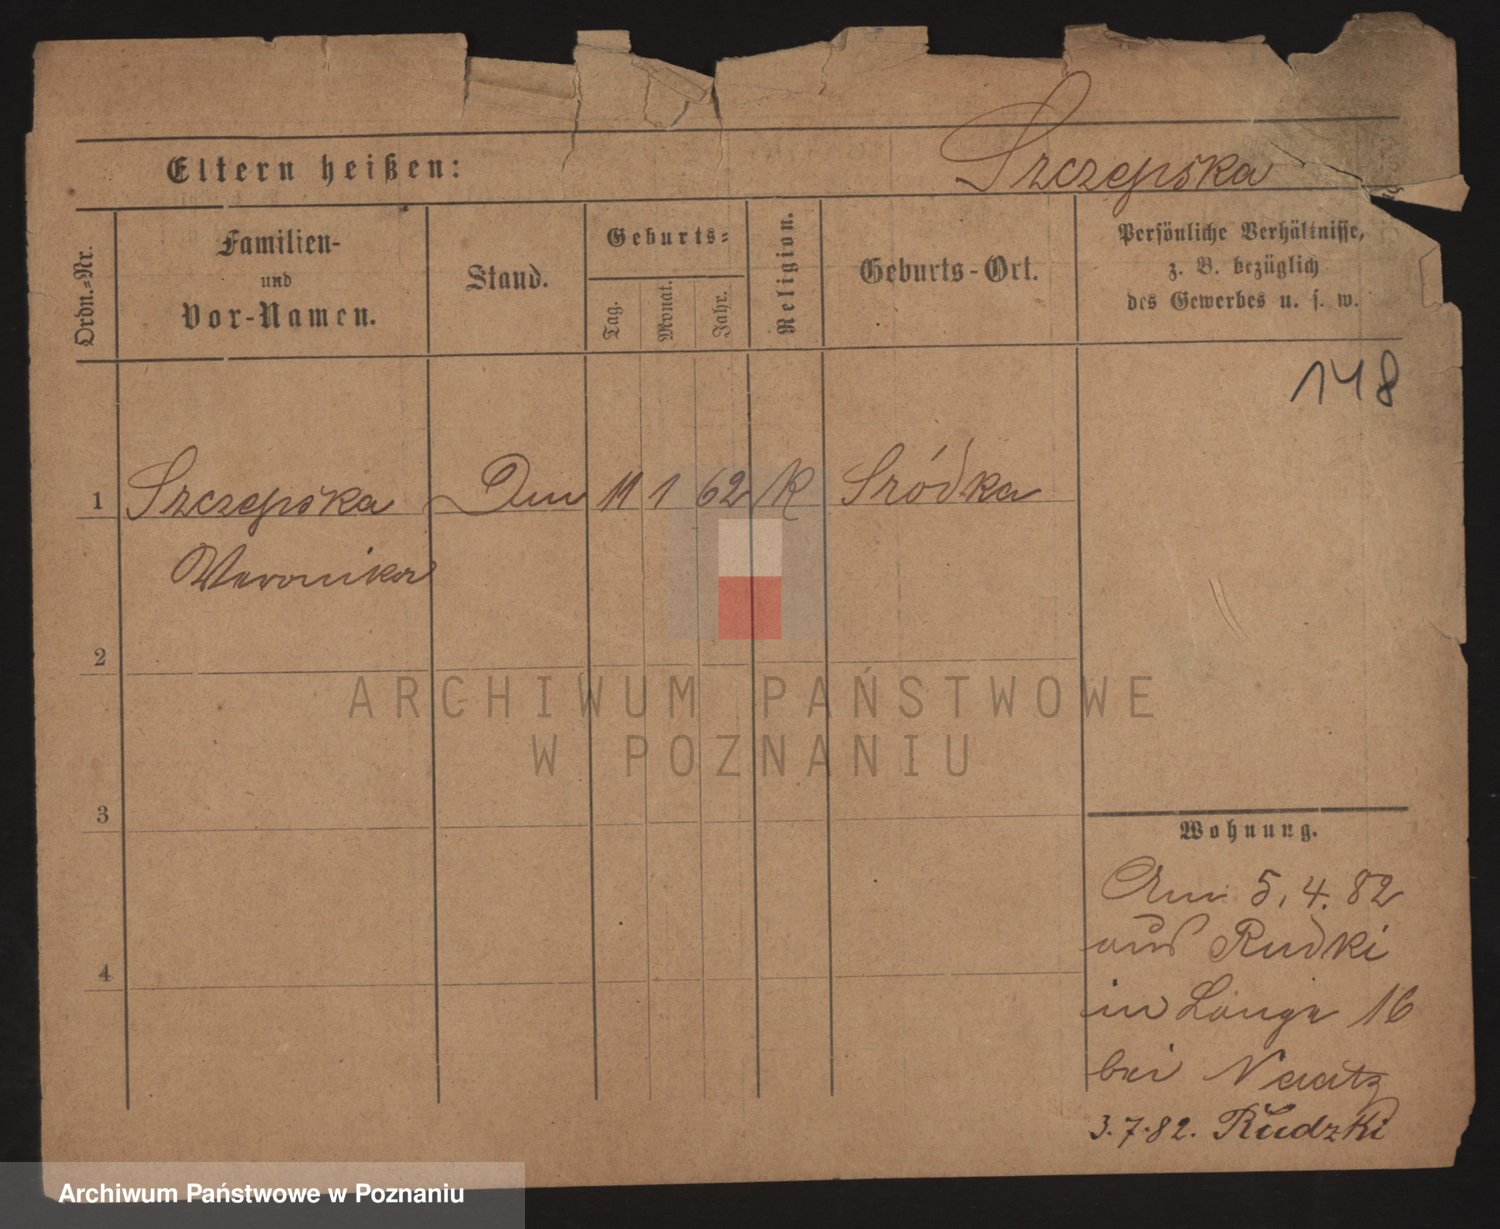 Szczepska
Eltern heißen:
Ordn.-Nr.
Familien-
und
Vor-Namen.
Stand.
Geburts-
Tag.
Monat.
Jahr.
Religion.
Geburts-Ort.
Persönliche Verhältnisse,
z. B. bezüglich
des Gewerbes u. s. w.
148
1 Szczepska 11 1 62 K Sródka
Veronika
2
ARCHIWUM PAŃSTWOWE
W POZNANIU
3
Wohnung.
Am 5. 4. 82
aus Rudki
in Lange 16
4
bei Naatz
3.7.82. Rudzki
Archiwum Państwowe w Poznaniu